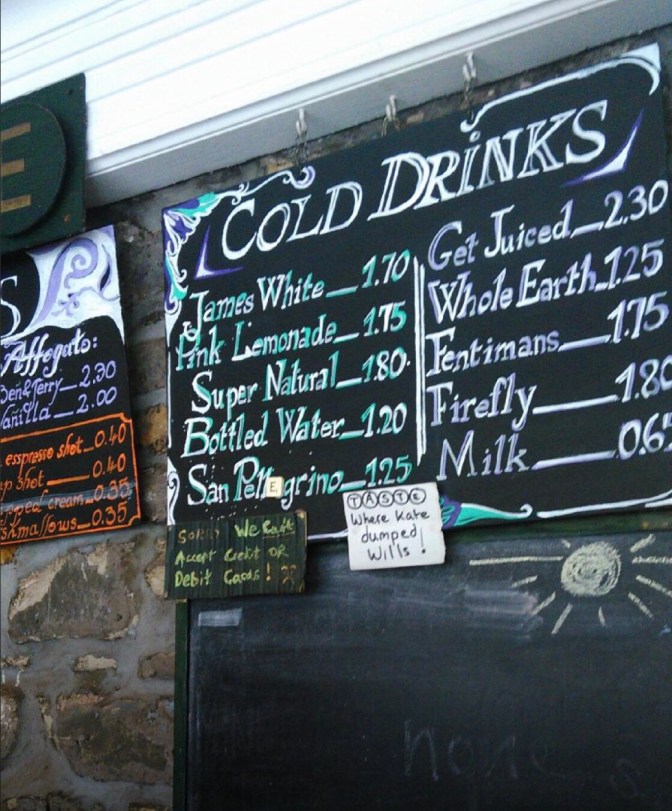 E
S
Affogato:
Ben&Jerry_2.30
Vanilla_2.00
esspresso shot_0.40
shot_0.40
cream_0.35
0.35
COLD DRINKS
James White_1.70
Pink Lemonade_1.75
Super Natural_1.80
Bottled Water_1.20
San Pellegrino_1.25
Get Juiced_2.30
Whole Earth_1.25
Fentimans_1.75
Firefly_1.80
Milk_0.65
Sorry We Can't
Accept Credit OR
Debit Cards!
TASTE
Where Kate
dumped
Wills!
none